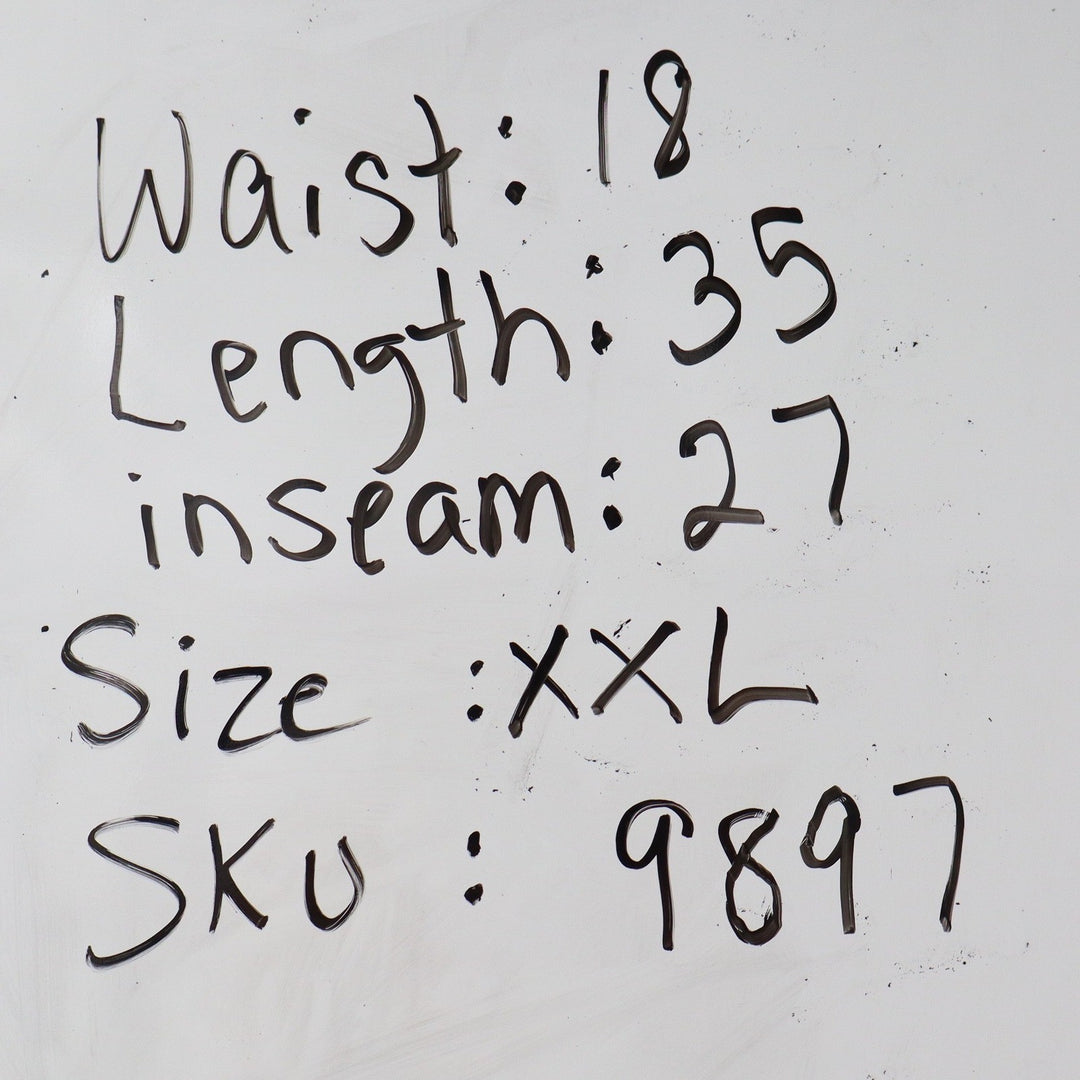 Waist: 18
Length: 35
inseam: 27
Size : XXL
SKU : 9897